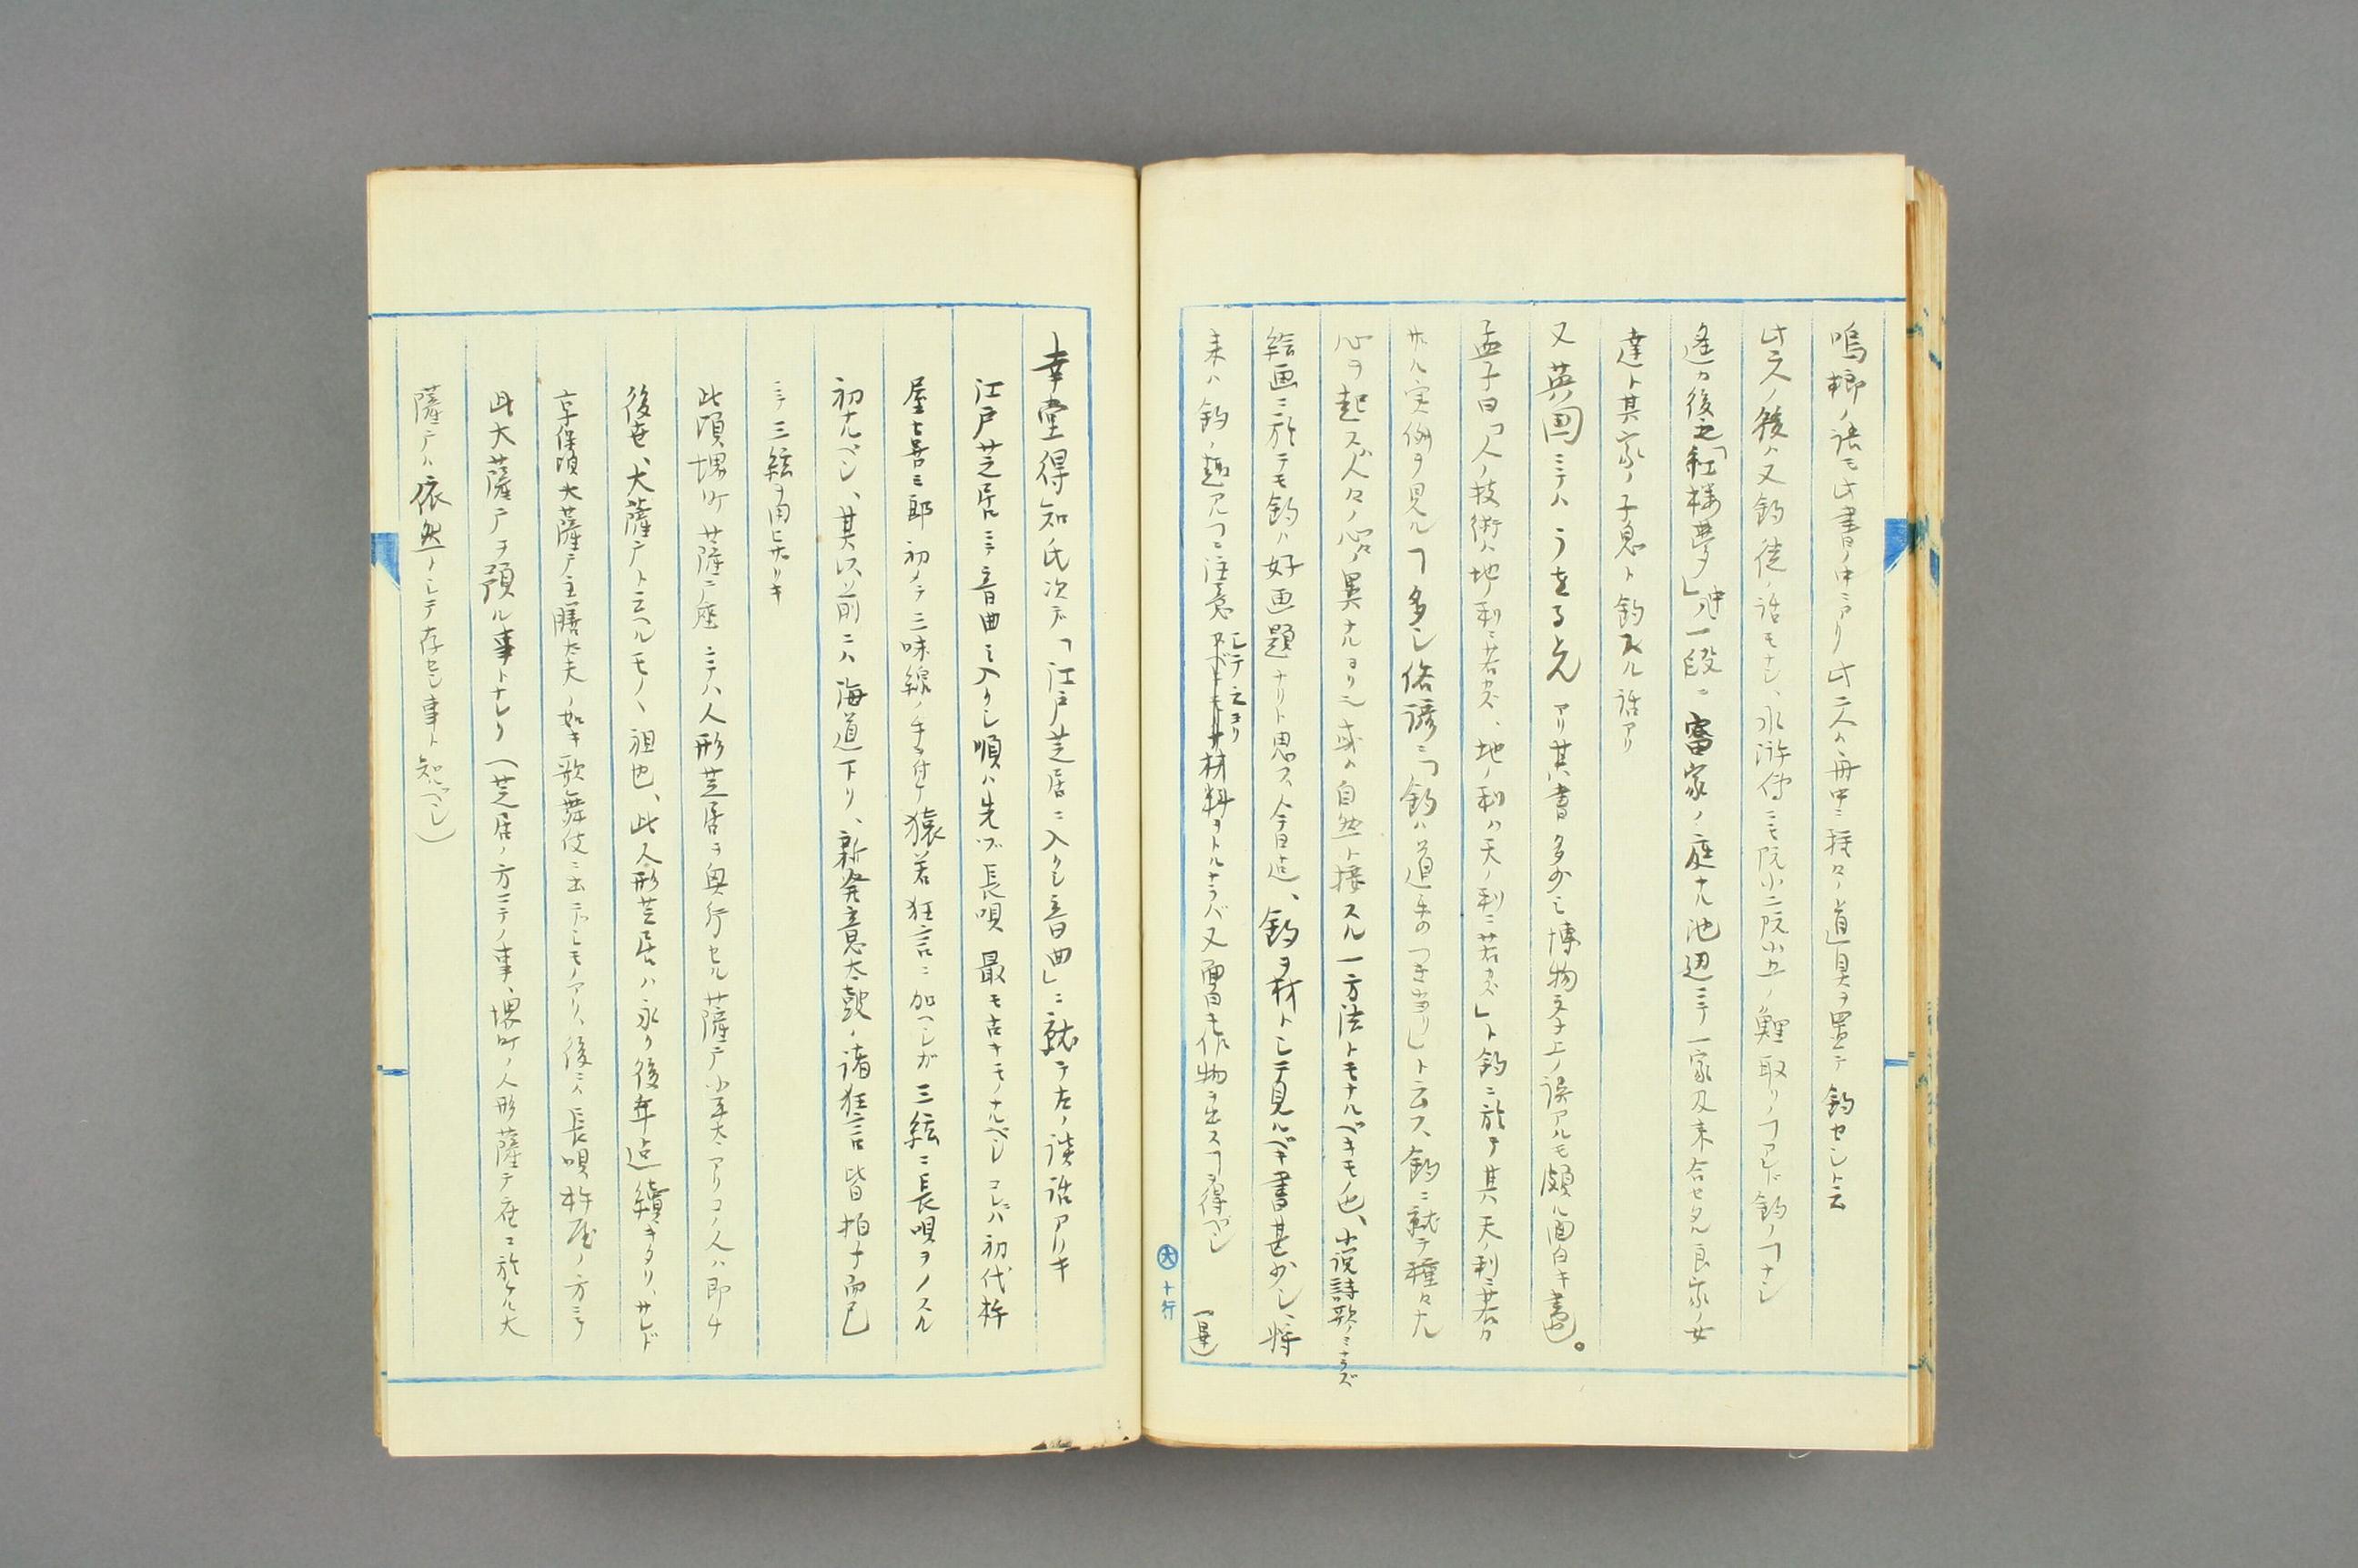 鳴榔ノ語モ此書ノ中ニアリ此二人ハ舟中ニ種々ノ道具ヲ置テ釣セント云
此二人ノ後ハ又釣徒ノ話モナシ、水滸傳ニモ阮小二阮小五ノ鯉取リノヿアレド釣ノヿナシ
遙カ後之「紅楼夢」中ノ一段ニ富家ノ庭ナル池辺ニテ一家及来合セタル良家ノ女
達ト其家ノ子息ト釣スル話アリ
又英国ニテハうをるとんアリ其書多少ハ博物学上ノ誤アルモ頗ル面白キ書也。
孟子曰「人ノ技術ハ地ノ利ニ若カズ、地ノ利ハ天ノ利ニ若カズ」ト釣ニ於テ其天ノ利ニ若カ
ザル実例ヲ見ルヿ多シ俗諺ニ「釣ハ道楽のつき当り」ト云フ、釣ニ就テ種々ナル
心ヲ起スハ人々ノ心ノ異ナルヨリニ或ハ自然ト接スル一方法トモナルベキモノ也、小説詩歌ノミナラズ
絵画ニ於テモ釣ハ好画題ナリト思フ、今日迄、釣ヲ材トシテ見ルベキ書甚少シ、将
来ハ釣ノ趣アルヿニ注意シテ之ヨリ材料ヲトルナラバ又面白キ作物ヲ出スヿヲ得ベシ
(畢)
大 十行
幸堂得知氏次デ「江戸芝居ニ入りし音曲」ニ就テ左ノ談話アリキ
江戸芝居ニテ音曲ニ入りし順ハ先ヅ長唄最モ古キモノナルベシコレハ初代杵
屋喜三郎初メテ三味線ノ手ヲ付ケ猿若狂言ニ加ヘシガ三絃ニ長唄ヲノスル
初ナルベシ、其以前ニハ海道下リ、新発意太鼓ノ諸狂言皆拍子而已
ニテ三絃ヲ用ヒザリキ
此頃堺町サ薩戸座ニテハ人形芝居ヲ興行セル薩戸小平太アリコノ人ハ即チ
後世、大薩戸ト云ヘルモノヽ祖也、此人形芝居ハ永ク後年迄續キタリ、サレド
享保頃大薩戸主膳太夫ノ如キ歌舞伎ニ出デシモノアリ、後ニハ長唄杵屋ノ方ニテ
此大薩戸ヲ預ル事トナレリ(芝居ノ方ニテノ事、堺町ノ人形薩戸座ニ於ケル大
薩戸ハ依然トシテ存セシ事ト知ルベシ)